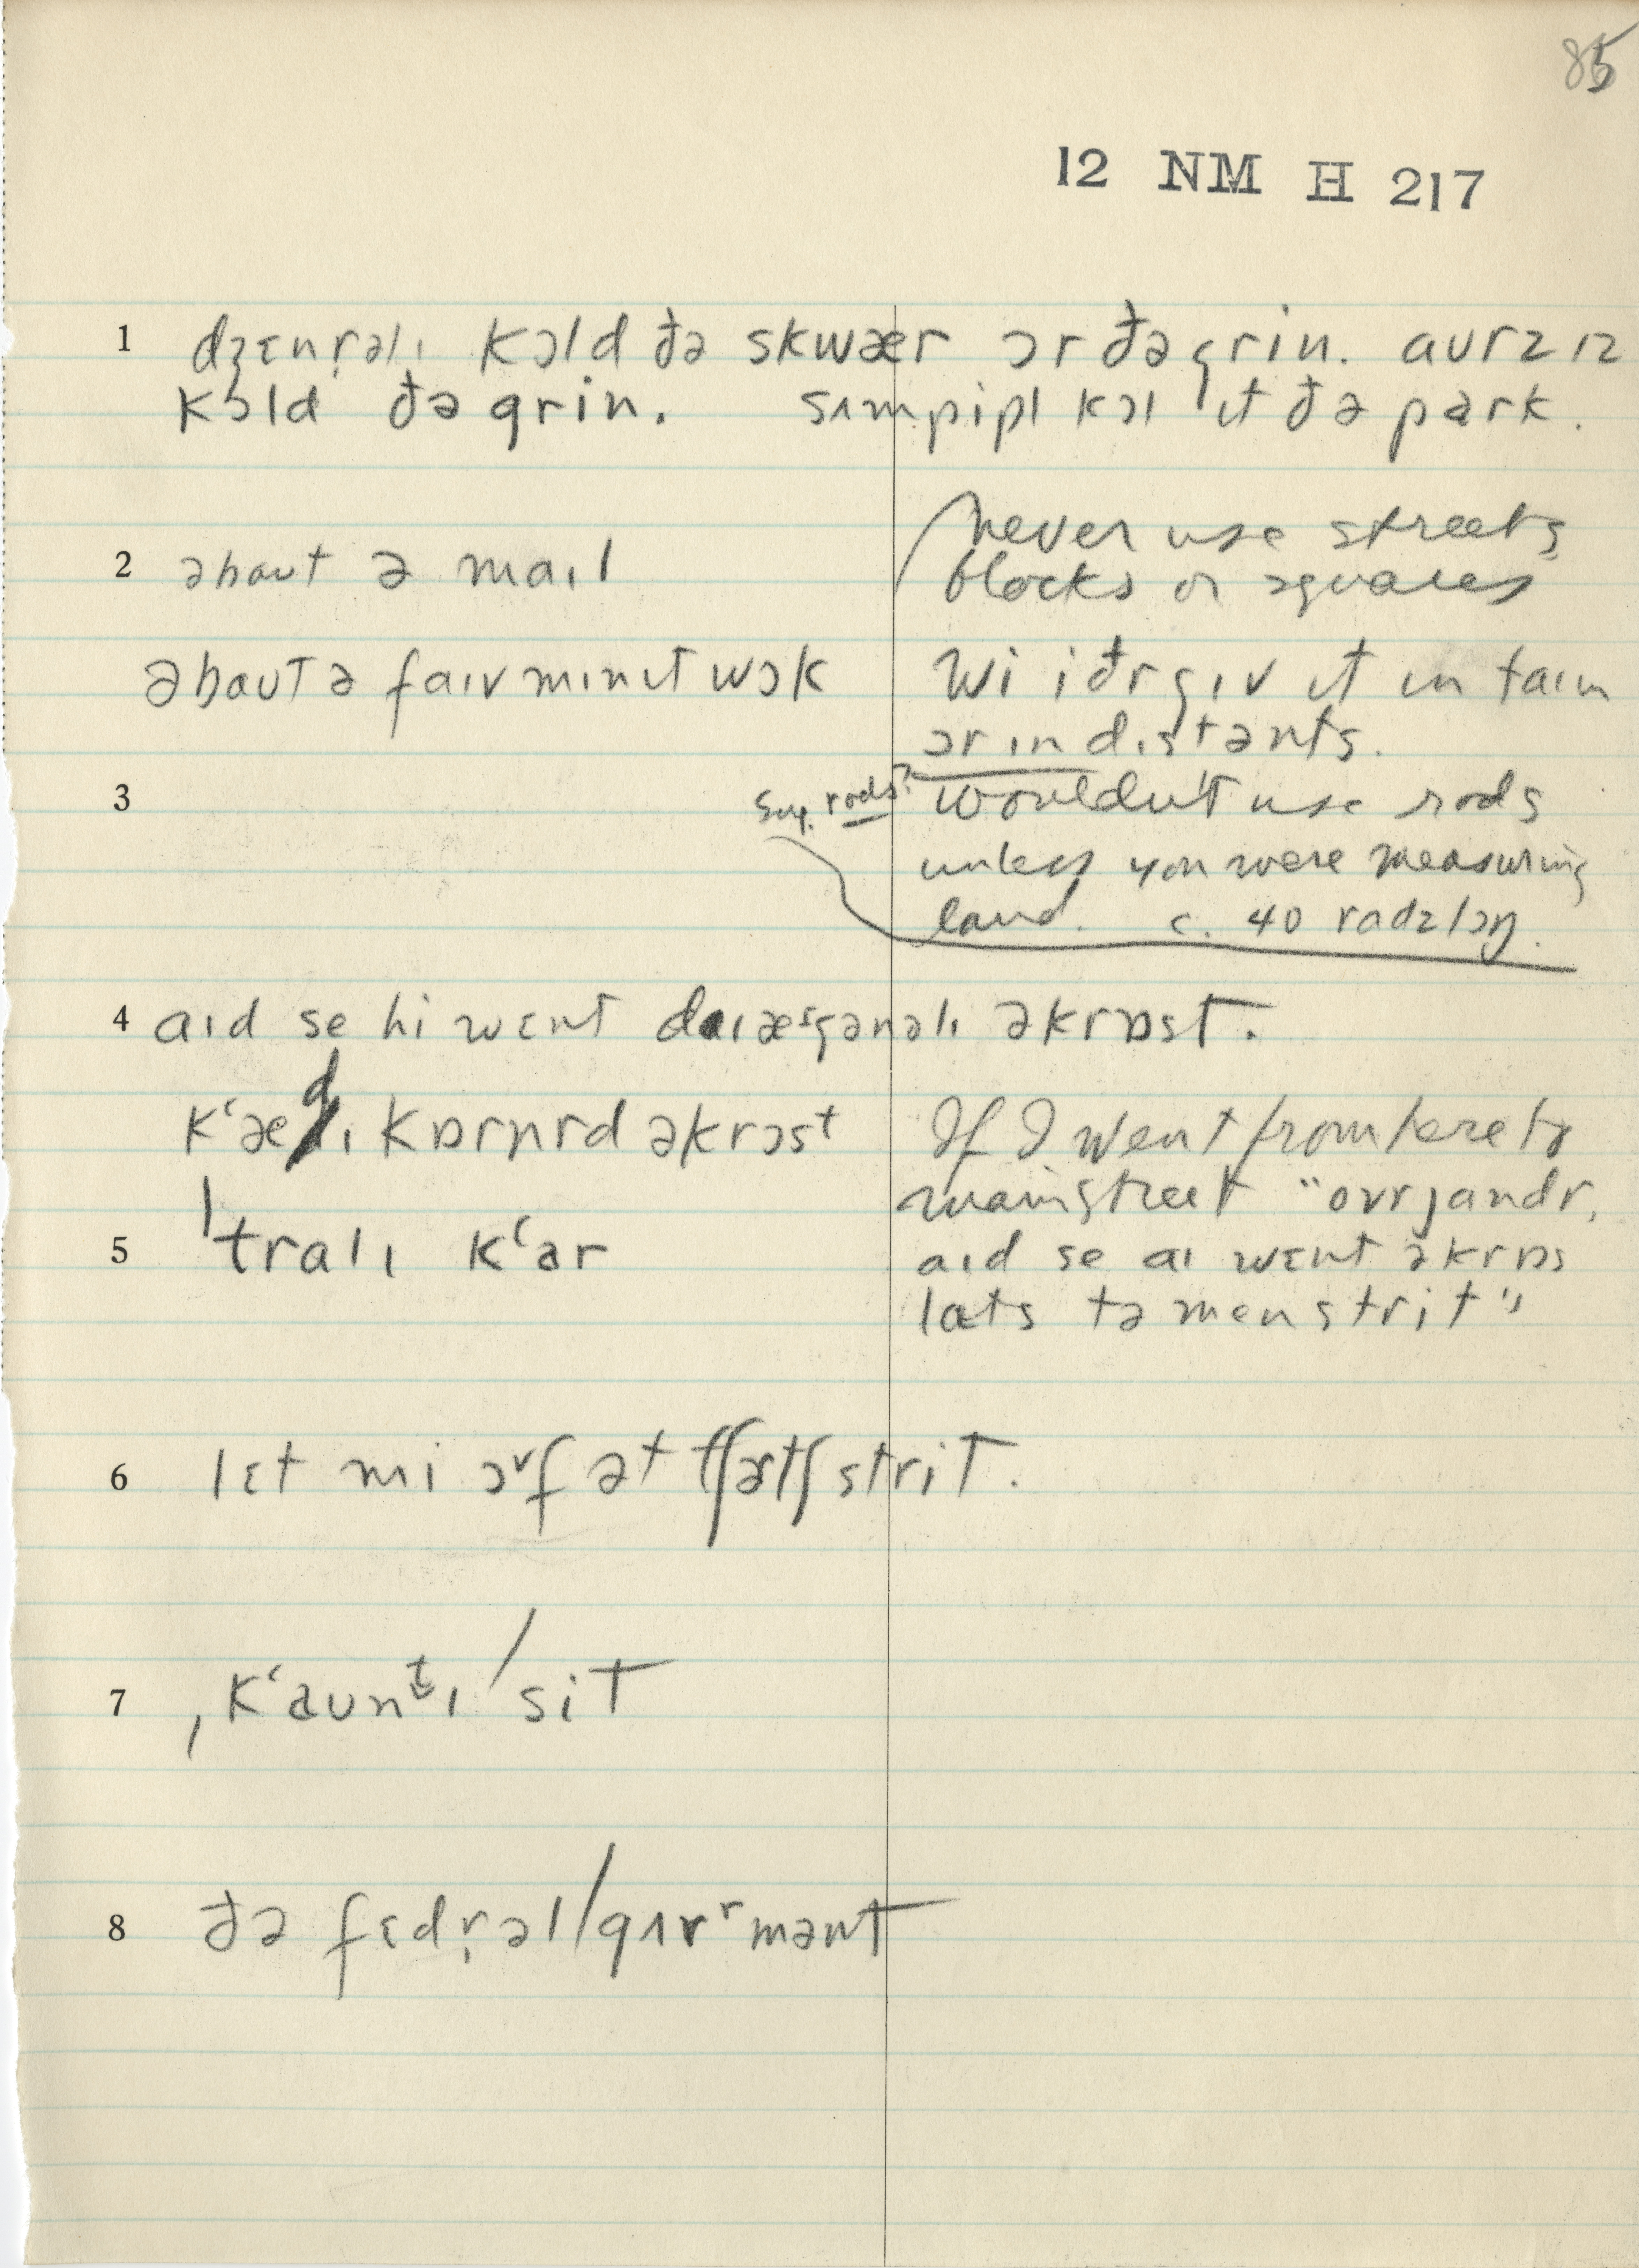 85
12 NM H 217
1 dʒɛnr̩əlɪ kɔld ðə skwær ɔr ðə grin. aurz ɪz
kɔld ðə grin. sʌmpipl kɔl ɪt ðə park.
never use streets
2 əbaut ə maɪl
blocks or squares
əbaut ə faɪv mɪnɪt wɔk
wi iðr gɪv ɪt ɪn taɪm
ɔr ɪn dɪstənts.
3 Sug. rods? wouldn't use rods
unless you were measuring
land. c. 40 radz lɔŋ.
4 aɪd se hi wɛnt daɪæˢgənəlɪ əkrɒst.
kʻædɪ kɒrnrd əkrɔst
If I went from here to
mainstreet "ovr jandr,
5 ˈtralɪ kʻar
aɪd se aɪ wɛnt əkrɒs
lats tə men strit"
6 lɛt mi ɔᵛf ət tʃɜtʃ strit.
7 ˌkʻaunᵗɪ/sit
8 ðə fɛdr̩əl/gʌvʳmənt